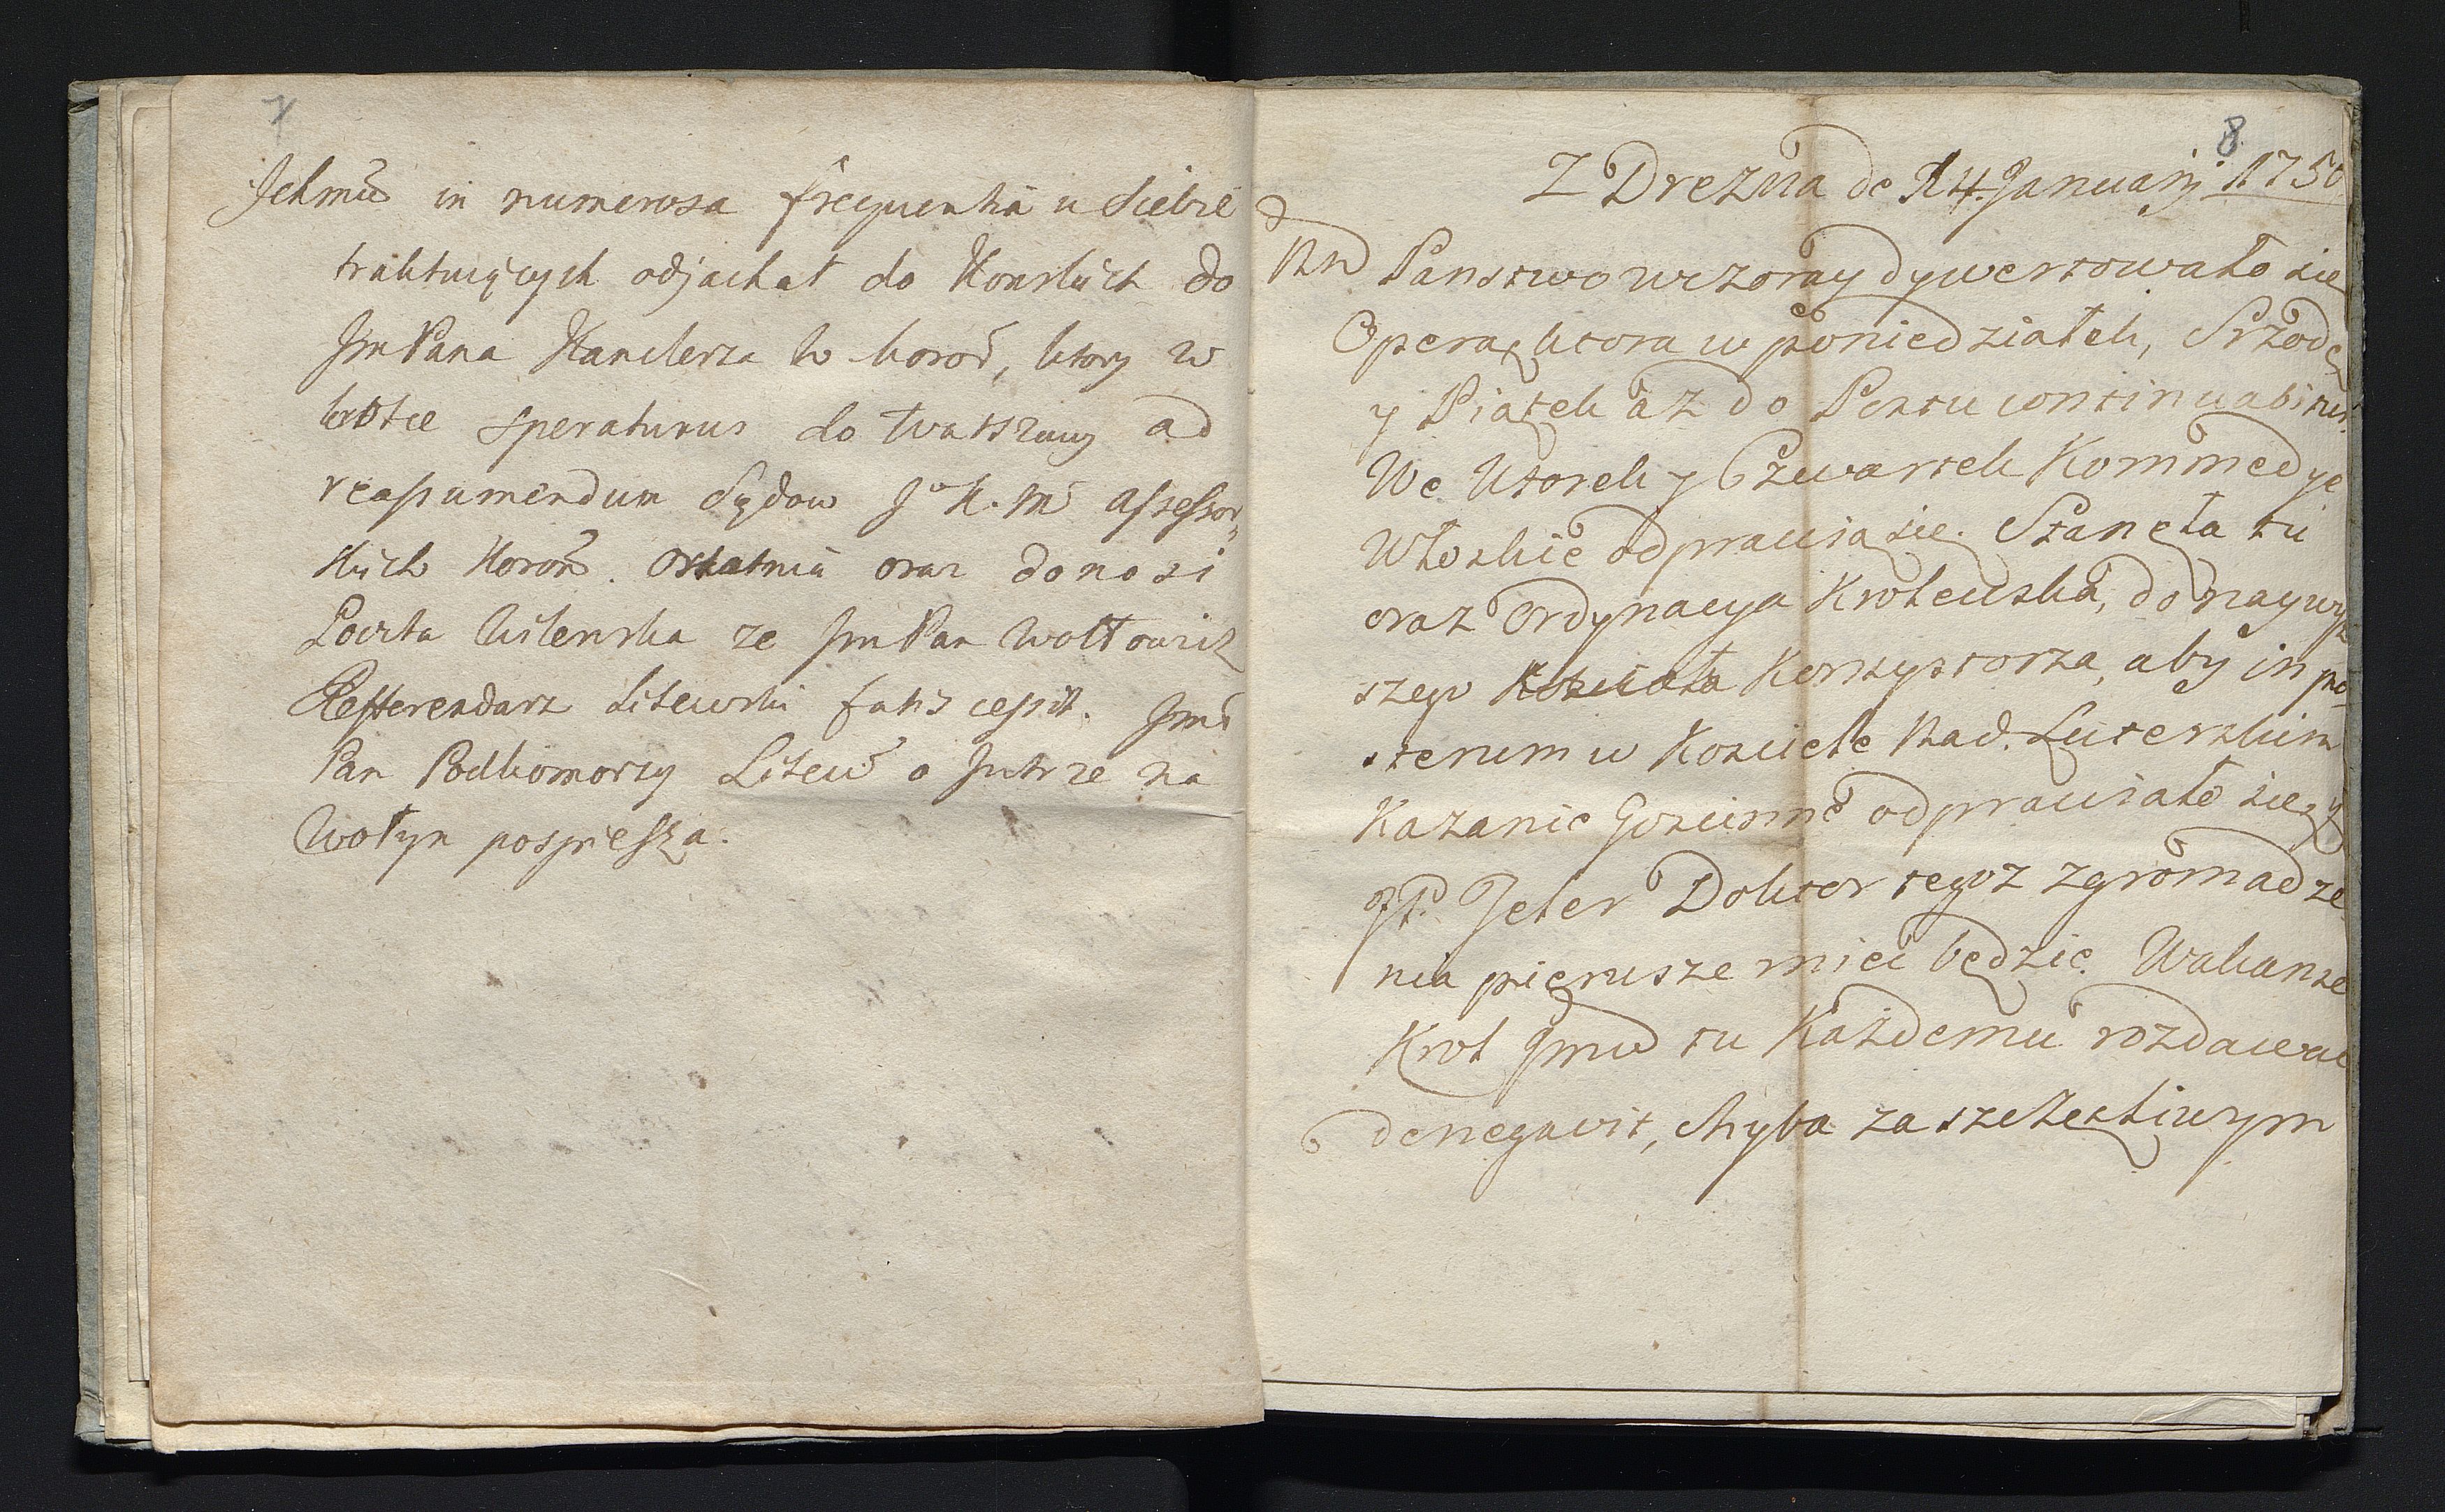 7
Jchmć in numerosa frequentia u siebie
traktuiących odjachał do Konskich do
Jm Pana Kanclerza W. Koroń, ktory w
krotce speraturus do Warszawy ad
reassumendum Sądow J K. M Assessor
skich Koroń. Ostatnia oraz donosi
Poczta Wilenska ze Jm Pan Wołłowicz
Refferendarz Litewski fatis cessit. Jmć
Pan Podkomorzy Litew o Jutrze na
Wołyn pospiesza.
8
Z Drezna de 14. Januarij 1750
Państwo wczoray dywertowało się
Operą, ktora w poniedziałek, Srzodę
y Piątek aż do Postu continuabitur.
We Wtorek y Czwartek Kommedye
Włoskie odprawią się. Stanęła tu
oraz Ordynacya Krolewska, do naywyż
szego Konsystorza, aby in po
sterum w Kosciele Nad. Luterskim
Kazanie Goscinne odprawiało się, y
JP. Jeter Doktor tegoz zgromadze
nia pierwsze mieć będzie. Wakanse
Krol Jmć tu Każdemu rozdawać
denegavit, chyba za szczęsliwym